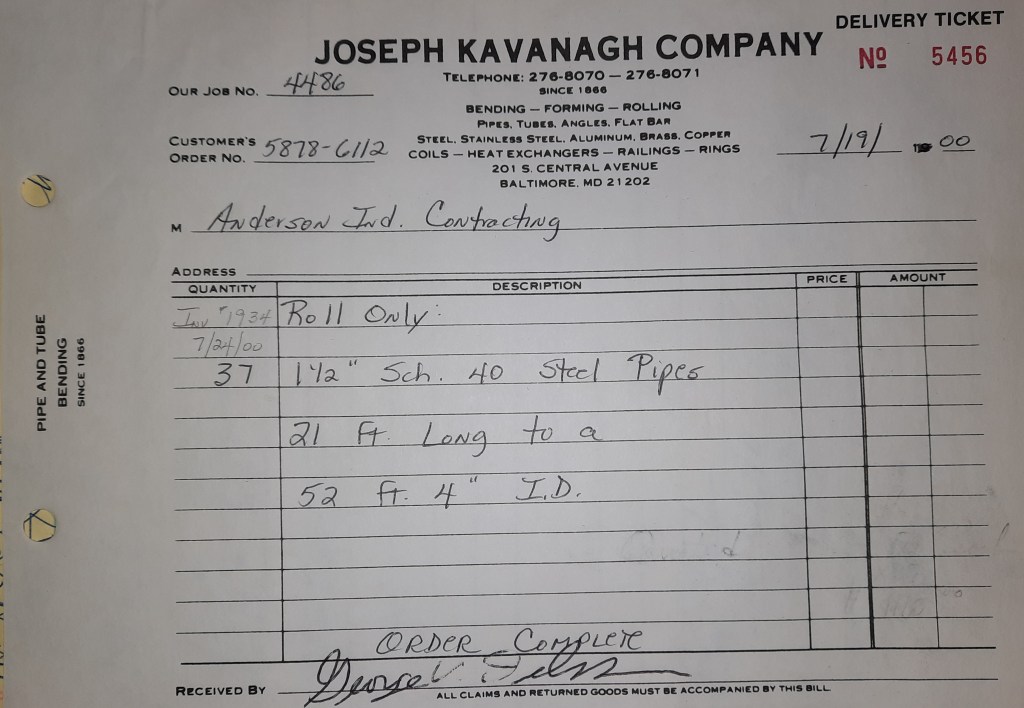 DELIVERY TICKET
JOSEPH KAVANAGH COMPANY
No 5456
TELEPHONE: 276-8070 — 276-8071
SINCE 1866
OUR JOB NO. 4486
BENDING — FORMING — ROLLING
PIPES, TUBES, ANGLES, FLAT BAR
CUSTOMER'S ORDER NO. 5878-6112
STEEL, STAINLESS STEEL, ALUMINUM, BRASS, COPPER
COILS — HEAT EXCHANGERS — RAILINGS — RINGS
7/19/ 00
201 S. CENTRAL AVENUE
BALTIMORE, MD 21202
M Anderson Ind. Contracting
ADDRESS
QUANTITY DESCRIPTION PRICE AMOUNT
Inv #1934 Roll Only:
7/24/00
37 1 1/2" Sch. 40 Steel Pipes
21 ft. Long to a
52 ft. 4" I.D.
ORDER Complete
RECEIVED BY George
ALL CLAIMS AND RETURNED GOODS MUST BE ACCOMPANIED BY THIS BILL
PIPE AND TUBE
BENDING
SINCE 1866